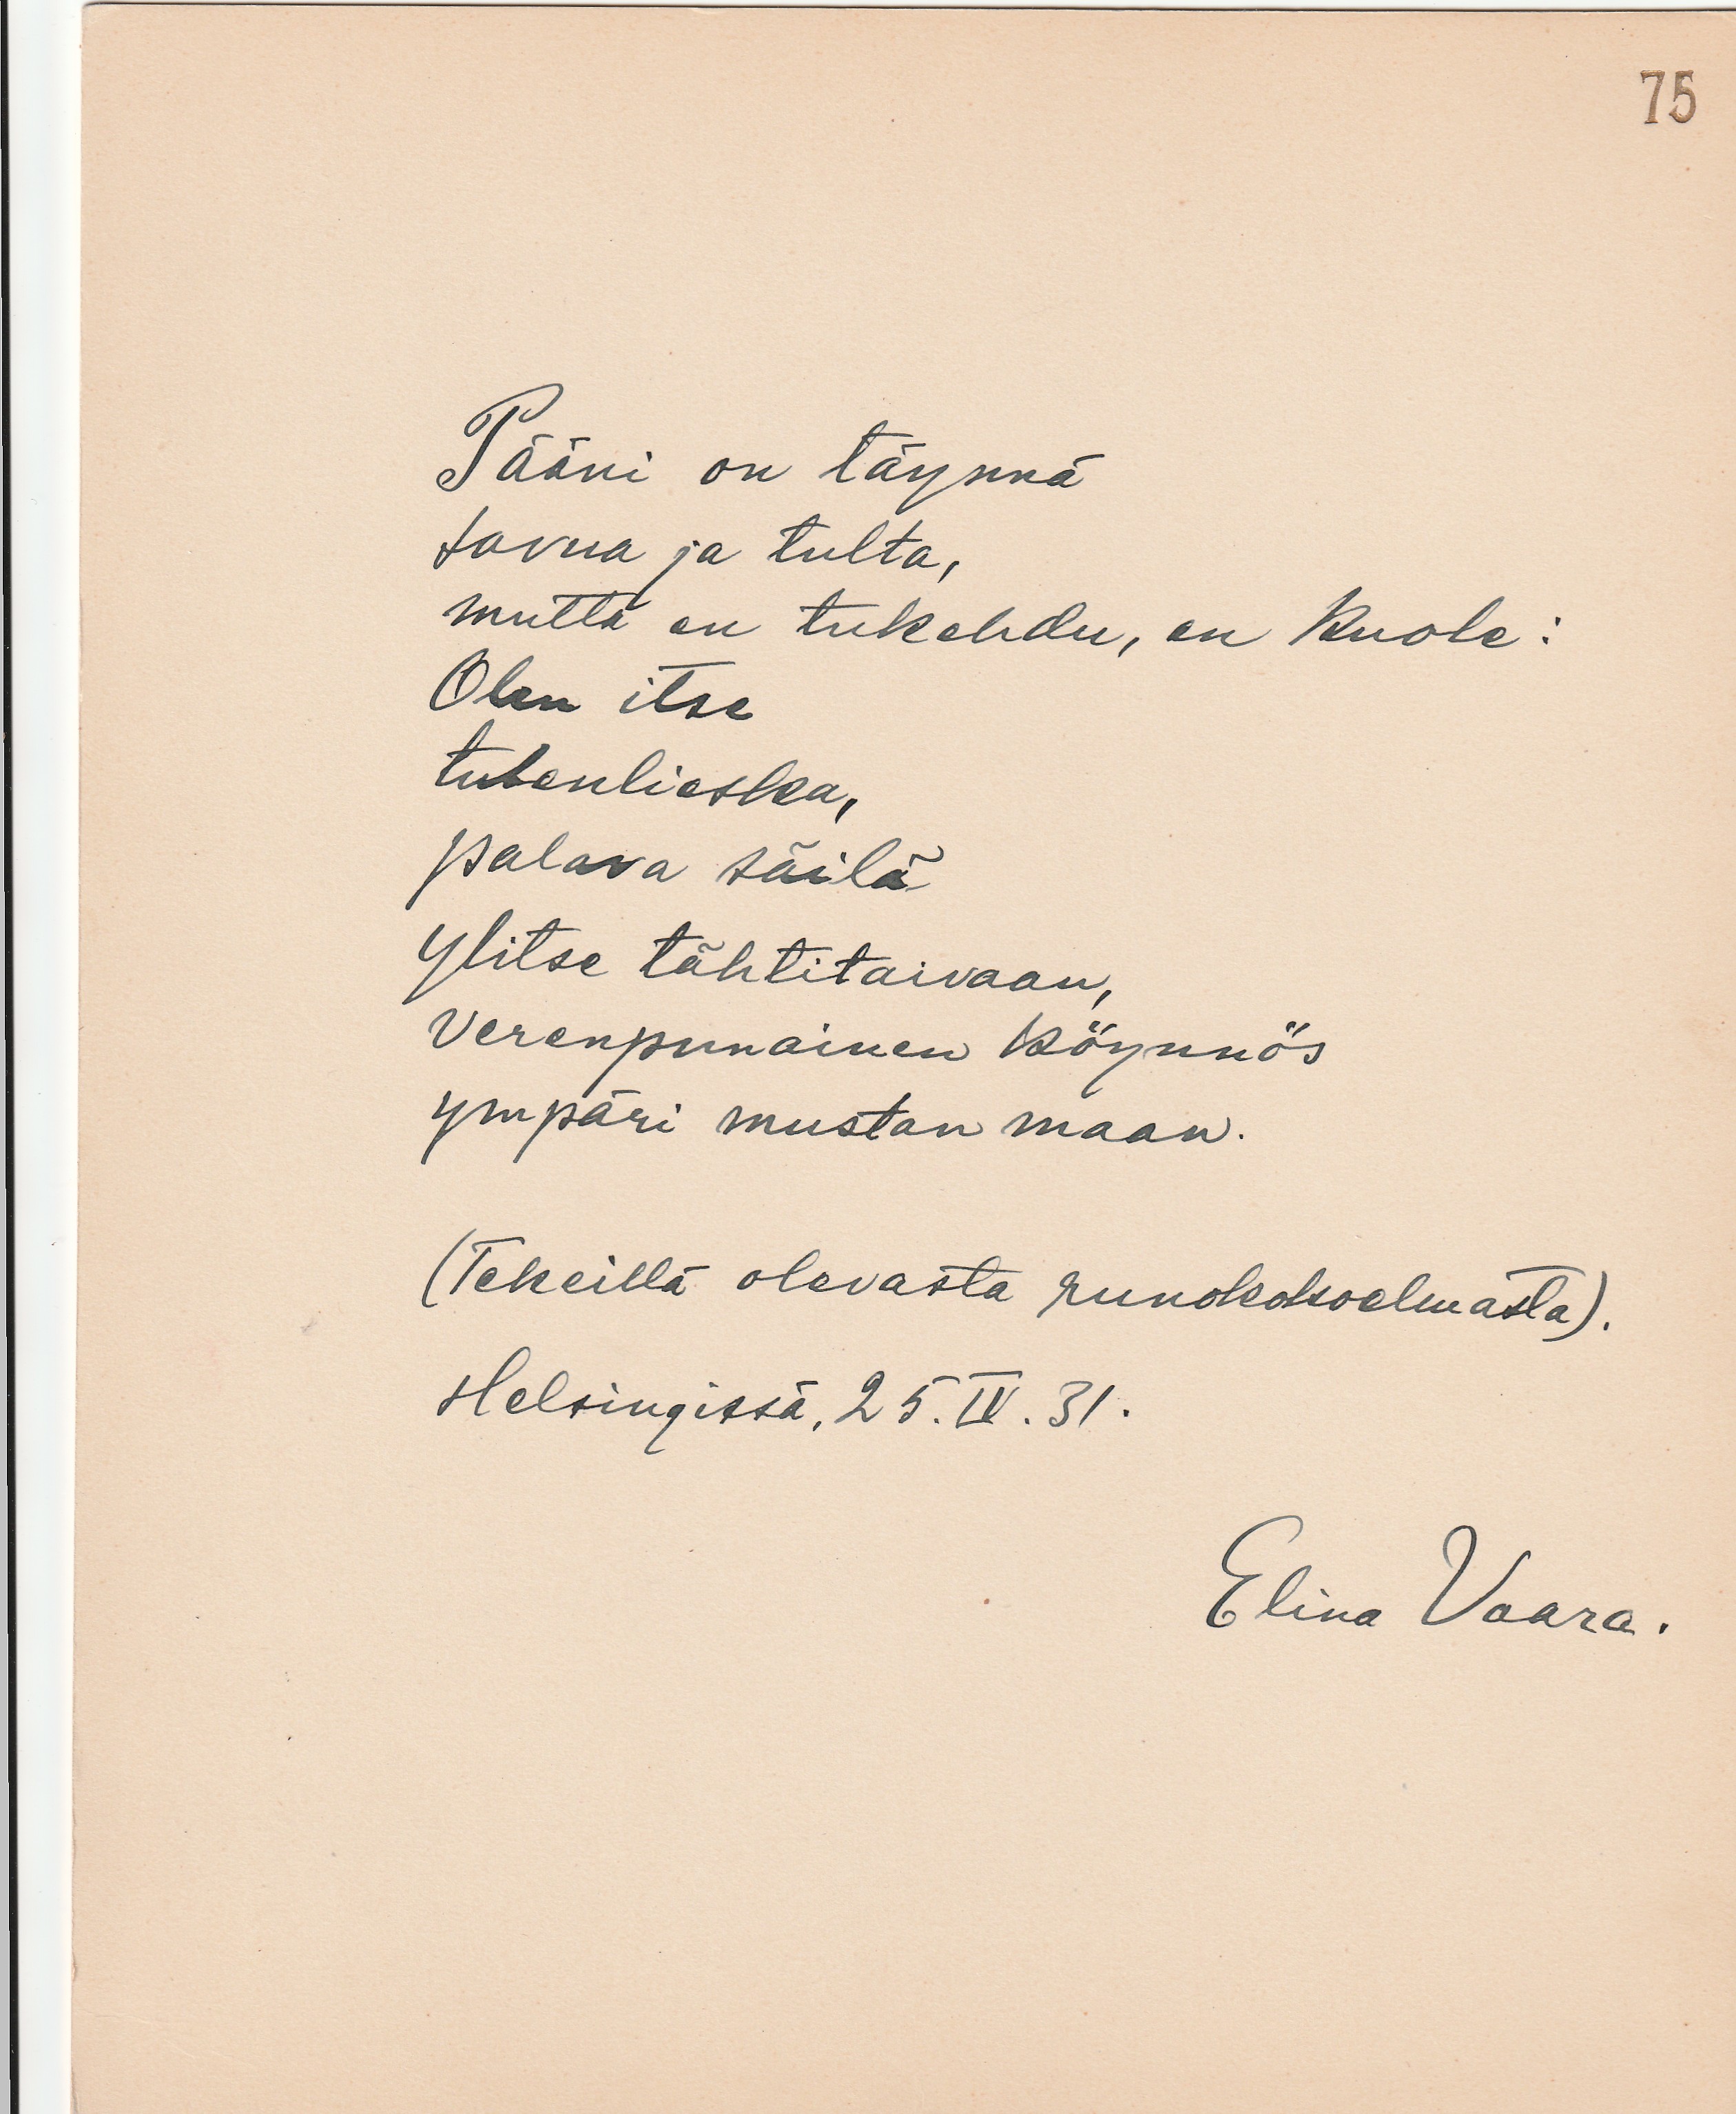 75
Pääni on täynnä
savua ja tulta,
mutta en tukehdu, en kuole:
Olen itse
tulenlieska,
palava säilä
ylitse tähtitaivaan,
verenpunainen köynnös
ympäri mustan maan.
(Tekeillä olevasta runokokoelmasta).
Helsingissä, 25.IV.31.
Elina Vaara.